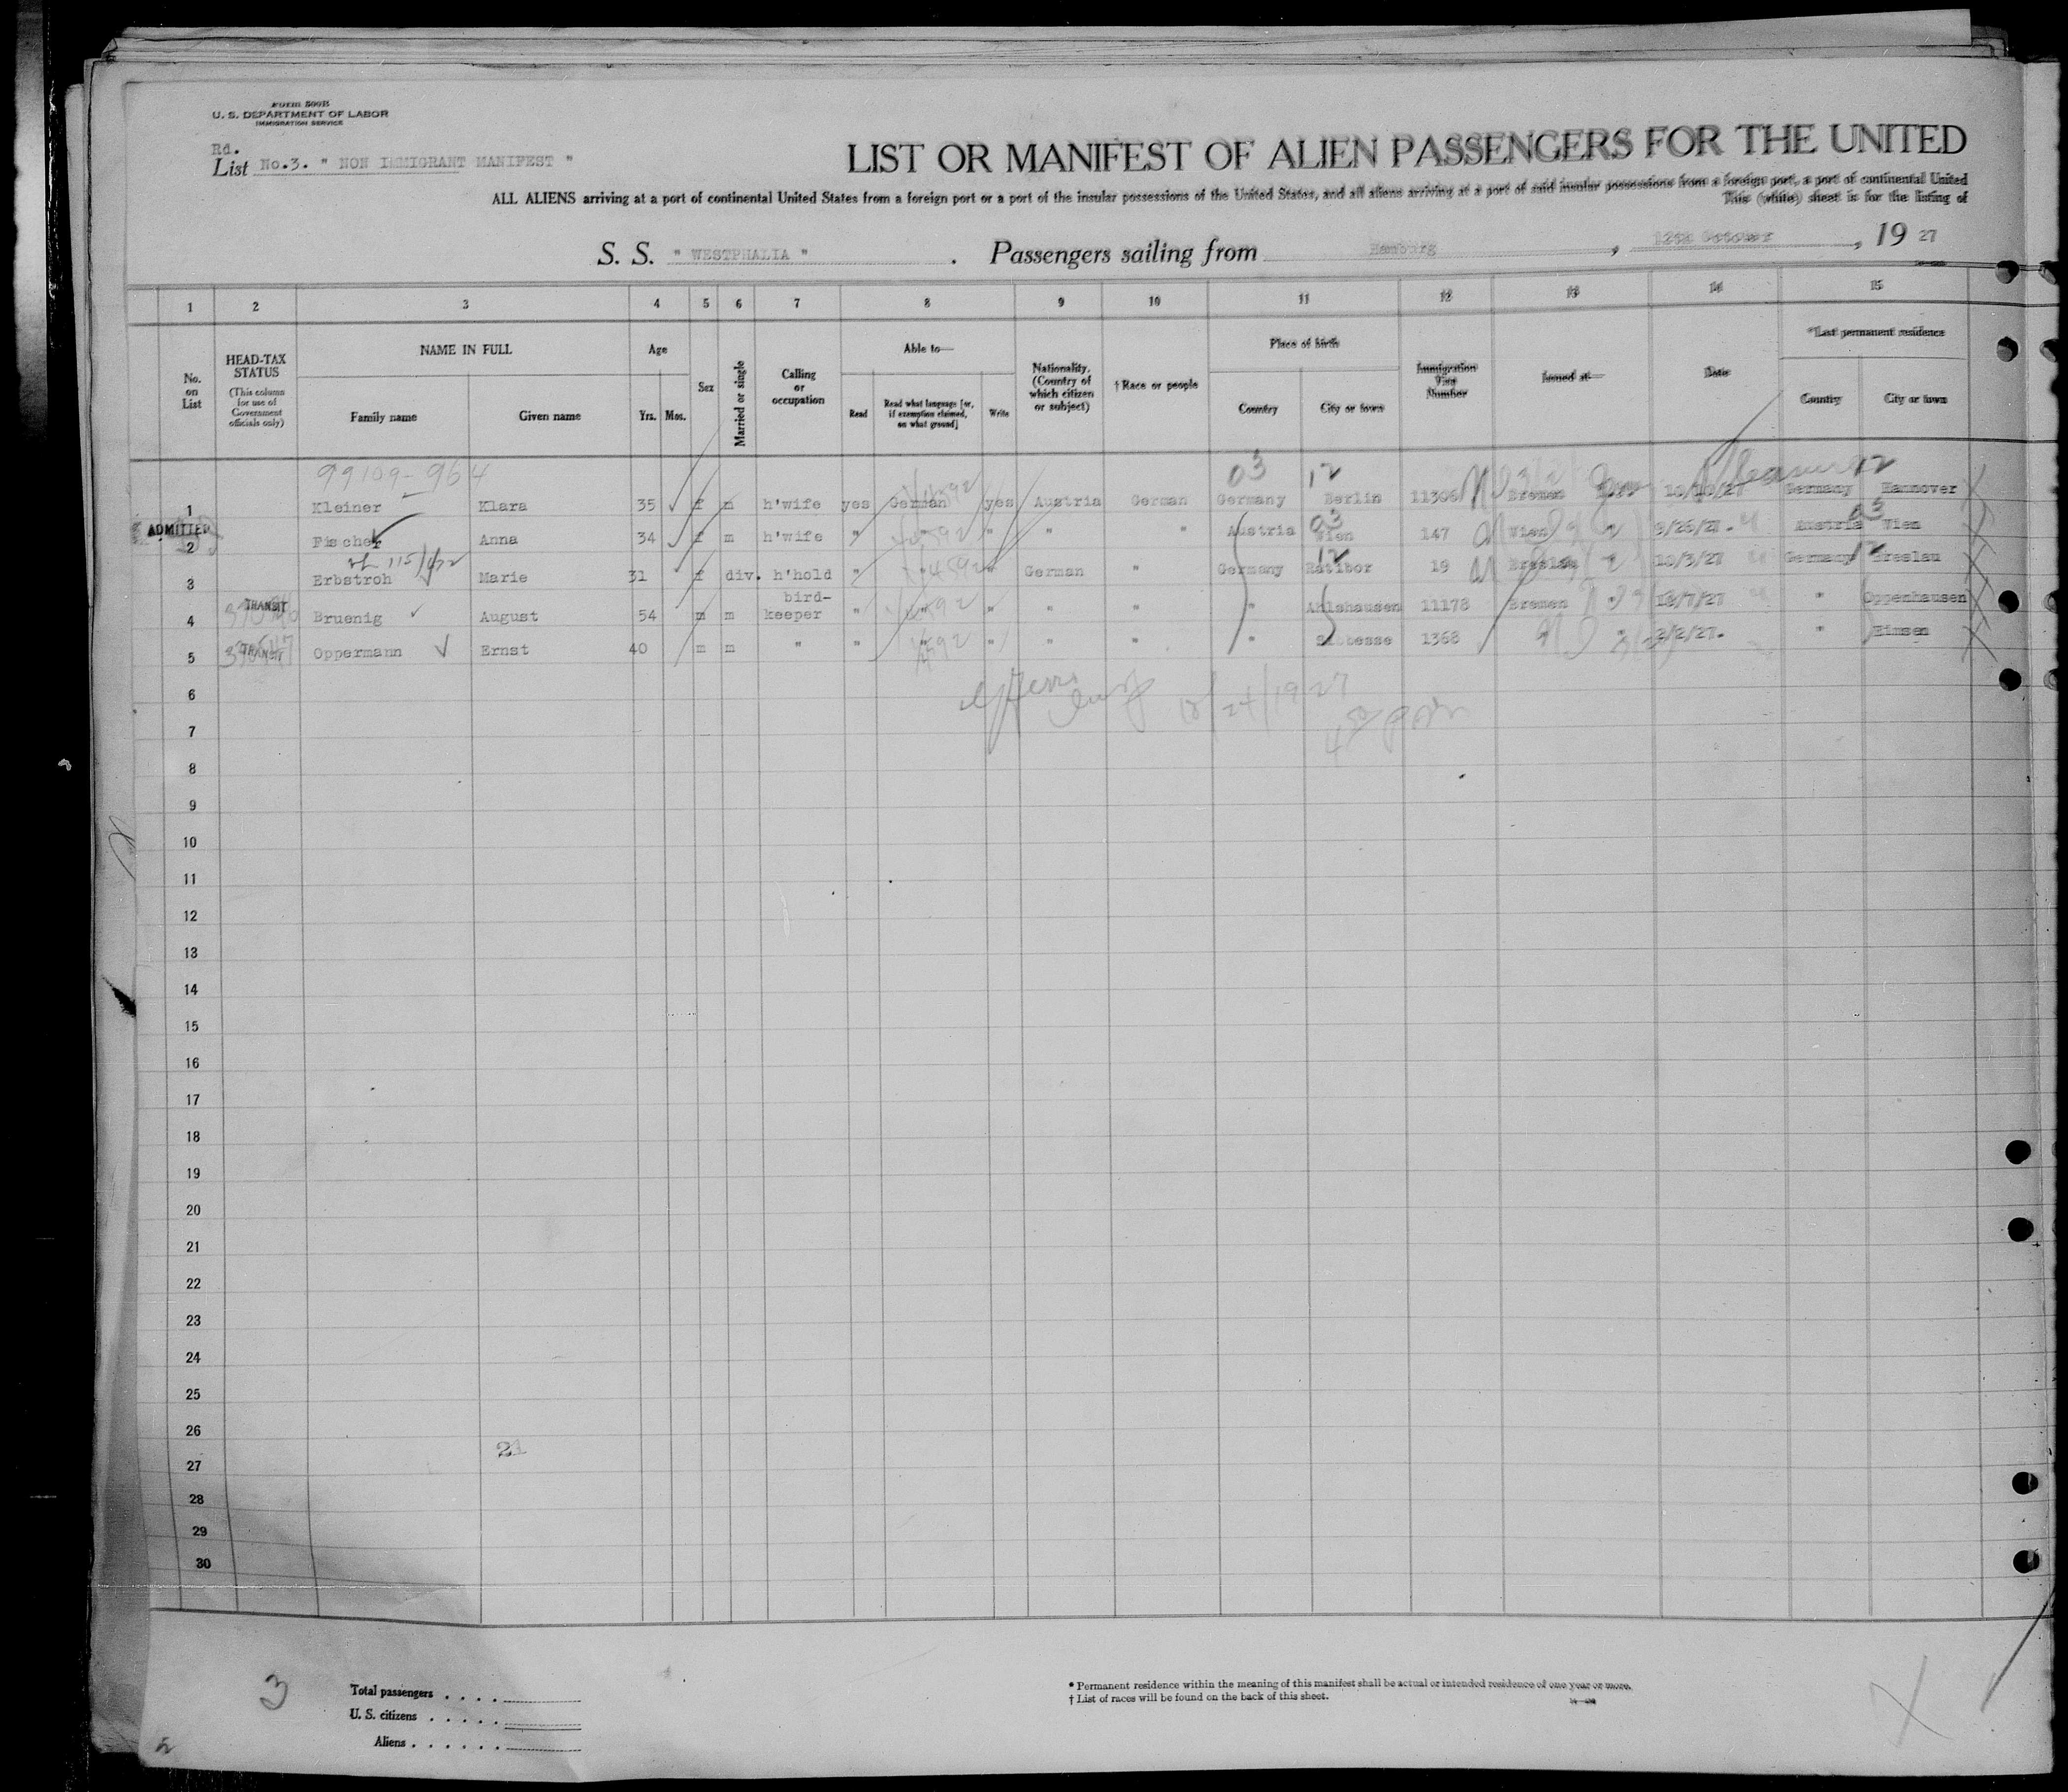 FORM 500B
U. S. DEPARTMENT OF LABOR
IMMIGRATION SERVICE
Rd.
List No.3. " NON IMMIGRANT MANIFEST "
LIST OR MANIFEST OF ALIEN PASSENGERS FOR THE UNITED
ALL ALIENS arriving at a port of continental United States from a foreign port or a port of the insular possessions of the United States, and all aliens arriving at a port of said insular possessions from a foreign port, a port of continental United
This (white) sheet is for the listing of
S. S. " WESTPHALIA " . Passengers sailing from Hamburg , 12th October , 19 27
1 2 3 4 5 6 7 8 9 10 11 12 13 14 15
No. on List
HEAD-TAX STATUS
(This column for use of Government officials only)
NAME IN FULL
Family name Given name
Age
Yrs. Mos.
Sex
Married or single
Calling or occupation
Able to—
Read
Read what language [or, if exemption claimed, on what ground]
Write
Nationality. (Country of which citizen or subject)
† Race or people
Place of birth
Country City or town
Immigration Visa Number
Issued at—
Date
*Last permanent residence
Country City or town
99109-964 03 12 12
1 Kleiner Klara 35 f m h'wife yes German yes Austria German Germany Berlin 11306 Bremen 10/10/27 Germany Hannover
ADMITTED
2 Fischer Anna 34 f m h'wife " " " " " Austria Wien 147 Wien 9/26/27. Austria Wien
3 Erbstroh Marie 31 f div. h'hold " " " German " Germany Ratibor 19 Breslau 10/3/27 Germany Breslau
4 TRANSIT Bruenig August 54 m m bird-keeper " " " " " " Ahlshausen 11178 Bremen 10/7/27 " Oppenhausen
5 TRANSIT Oppermann Ernst 40 m m " " " " " " " 1368 " 2/2/27. " Eimsen
10/24/1927
6
7
8
9
10
11
12
13
14
15
16
17
18
19
20
21
22
23
24
25
26
21
27
28
29
30
3
Total passengers
U. S. citizens
Aliens
* Permanent residence within the meaning of this manifest shall be actual or intended residence of one year or more.
† List of races will be found on the back of this sheet.